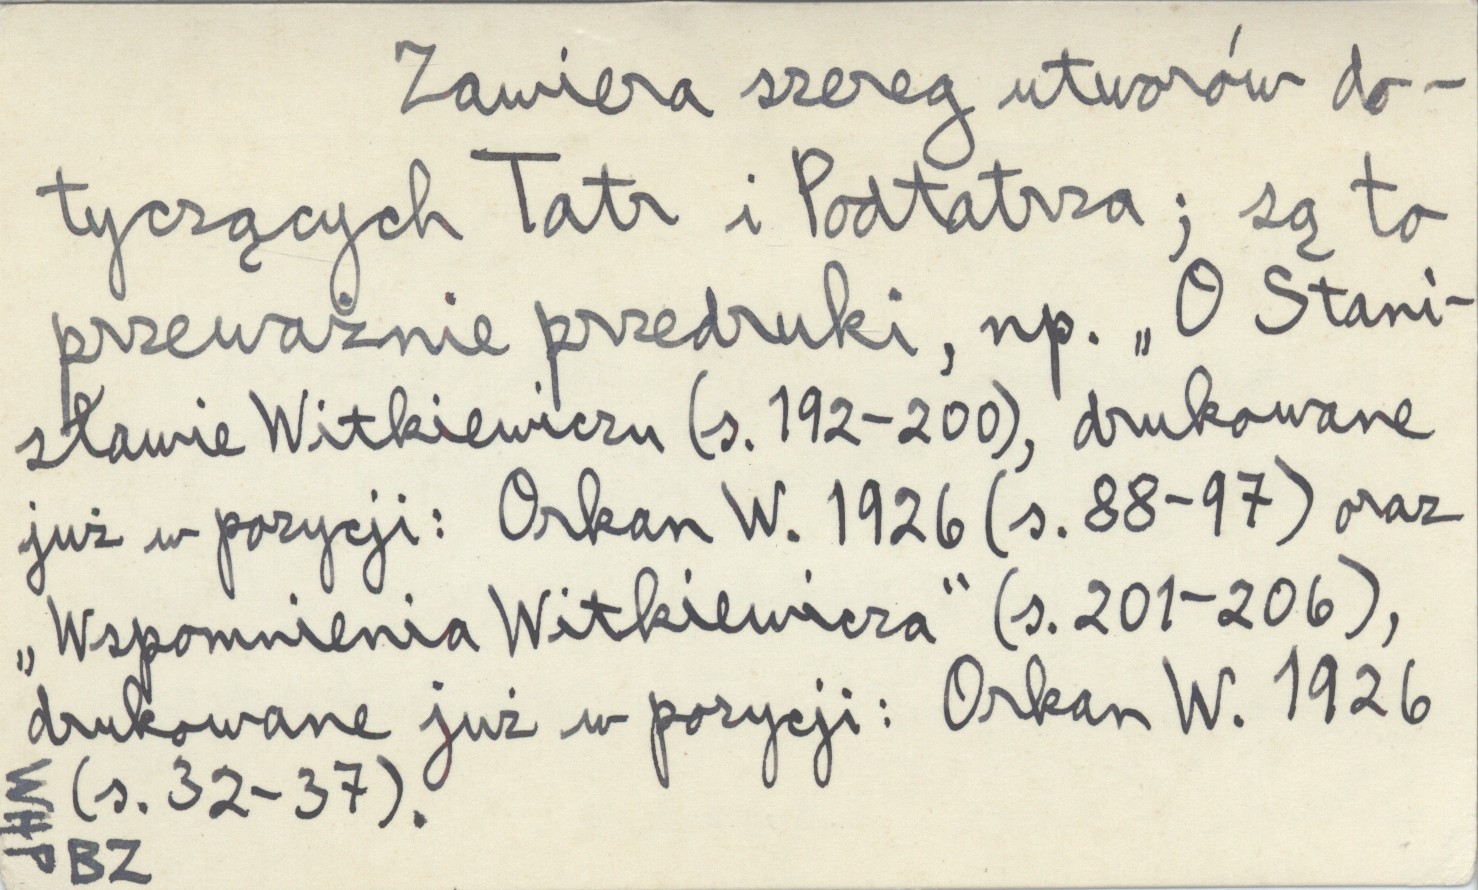 Zawiera szereg utworów do-
tyczących Tatr i Podtatrza; są to
przeważnie przedruki, np. „O Stani-
sławie Witkiewiczu (s. 192-200), drukowane
już w pozycji: Orkan W. 1926 (s. 88-97) oraz
„Wspomnienia Witkiewicza“ (s. 201-206),
drukowane już w pozycji: Orkan W. 1926
(s. 32-37).
WHP
BZ